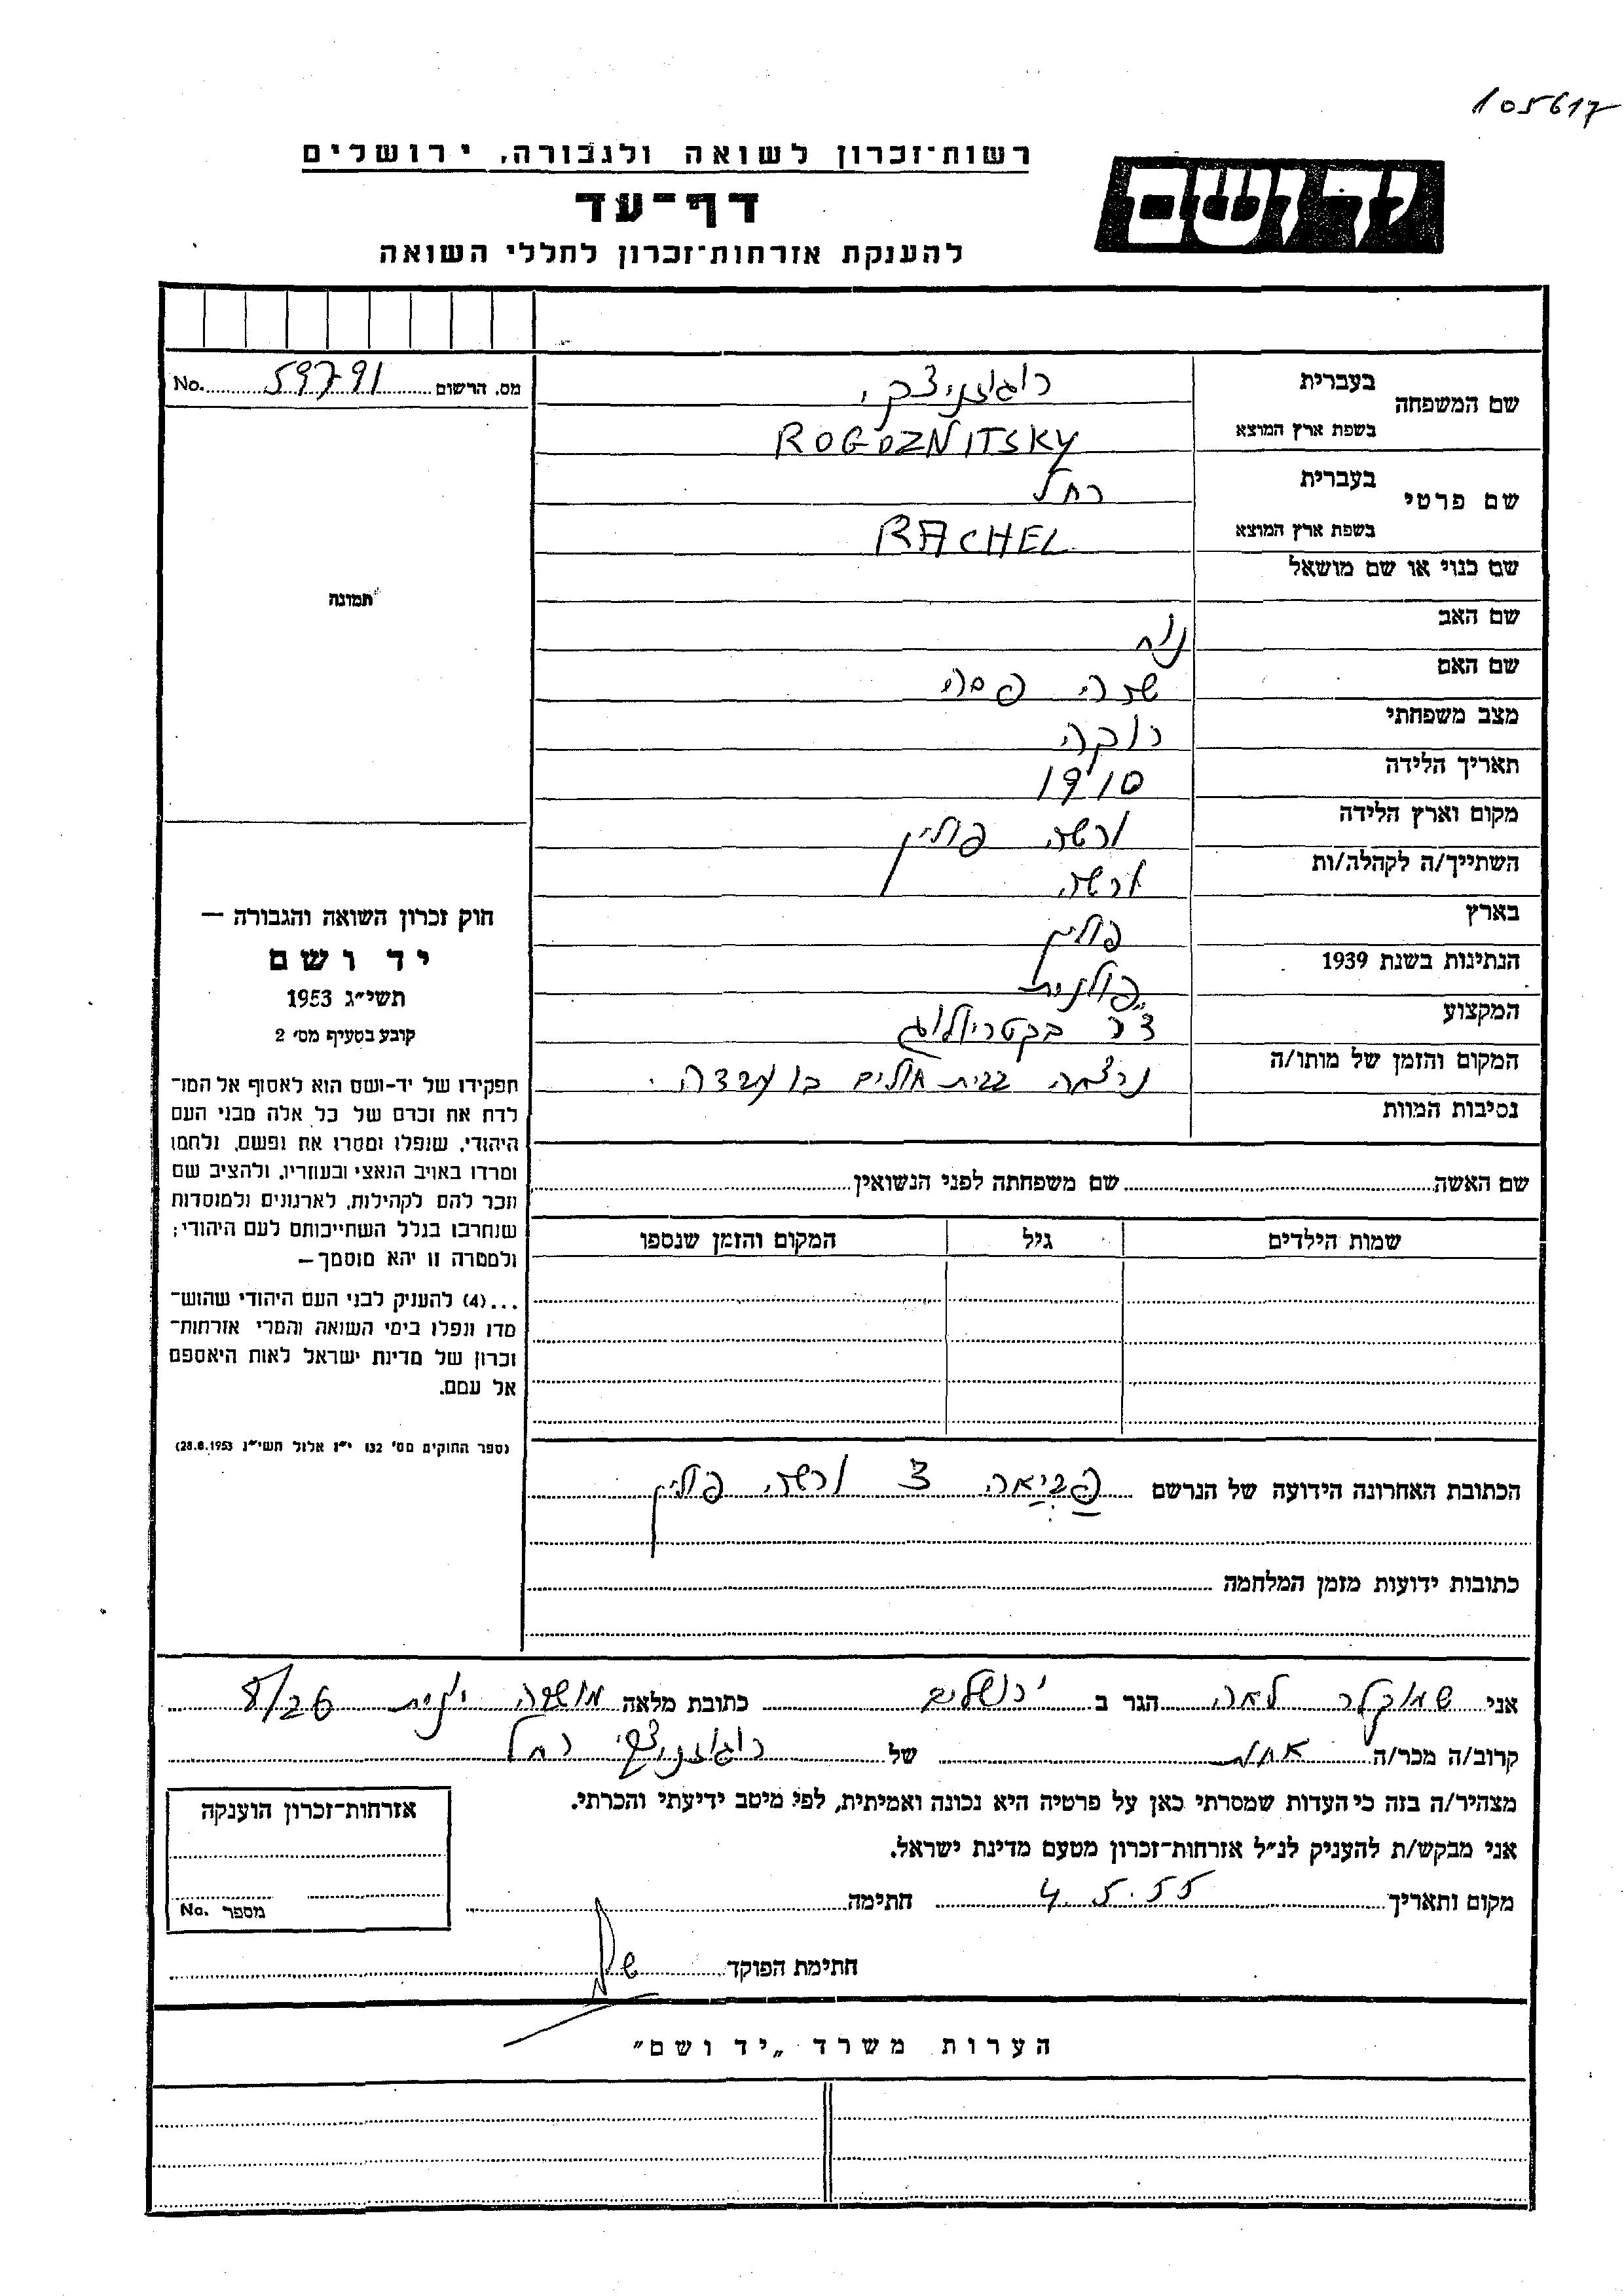 105617
יד ושם
רשות־זכרון לשואה ולגבורה, ירושלים
דף־עד
להענקת אזרחות־זכרון לחללי השואה
שם המשפחה בעברית רוגוזניצקי
בשפת ארץ המוצא ROGOZNITSKY
שם פרטי בעברית רחל
בשפת ארץ המוצא RACHEL
שם כנוי או שם מושאל
שם האב נוח
שם האם שרה פסה
מצב משפחתי רוקה
תאריך הלידה 1910
מקום וארץ הלידה ורשה פולין
השתייך/ה לקהלה/ות ורשה
בארץ פולין
הנתינות בשנת 1939 פולנית
המקצוע ד"ר בקטריולוג
המקום והזמן של מותו/ה נרצחה בבית חולים בו עבדה.
נסיבות המוות
שם האשה שם משפחתה לפני הנשואין
שמות הילדים גיל המקום והזמן שנספו
הכתובת האחרונה הידועה של הנרשם 3 ורשה פולין
כתובות ידועות מזמן המלחמה
מס. הרשום 59791 No.
תמונה
חוק זכרון השואה והגבורה —
יד ושם
תשי״ג 1953
קובע בסעיף מס׳ 2
תפקידו של יד-ושם הוא לאסוף אל המו־
לדת את זכרם של כל אלה מבני העם
היהודי, שנפלו ומסרו את נפשם, נלחמו
ומרדו באויב הנאצי ובעוזריו, ולהציב שם
וזכר להם לקהילות, לארגונים ולמוסדות
שנחרבו בגלל השתייכותם לעם היהודי;
ולמטרה זו יהא מוסמך—
...(4) להעניק לבני העם היהודי שהוש־
מדו ונפלו בימי השואה והמרי אזרחות־
זכרון של מדינת ישראל לאות היאספם
אל עמם.
(ספר החוקים מס׳ 132 י״ז אלול תשי״ג 28.8.1953)
אני שמוקלר לאה הגר ב ירושלים כתובת מלאה מושבה יונית 8/26
קרוב/ה מכר/ה אחות של רוגוזניצקי רחל
מצהיר/ה בזה כי העדות שמסרתי כאן על פרטיה היא נכונה ואמיתית, לפי מיטב ידיעתי והכרתי.
אני מבקש/ת להעניק לנ״ל אזרחות־זכרון מטעם מדינת ישראל.
מקום ותאריך 4.5.55 חתימה
חתימת הפוקד
אזרחות־זכרון הוענקה
מספר No.
הערות משרד „יד ושם״